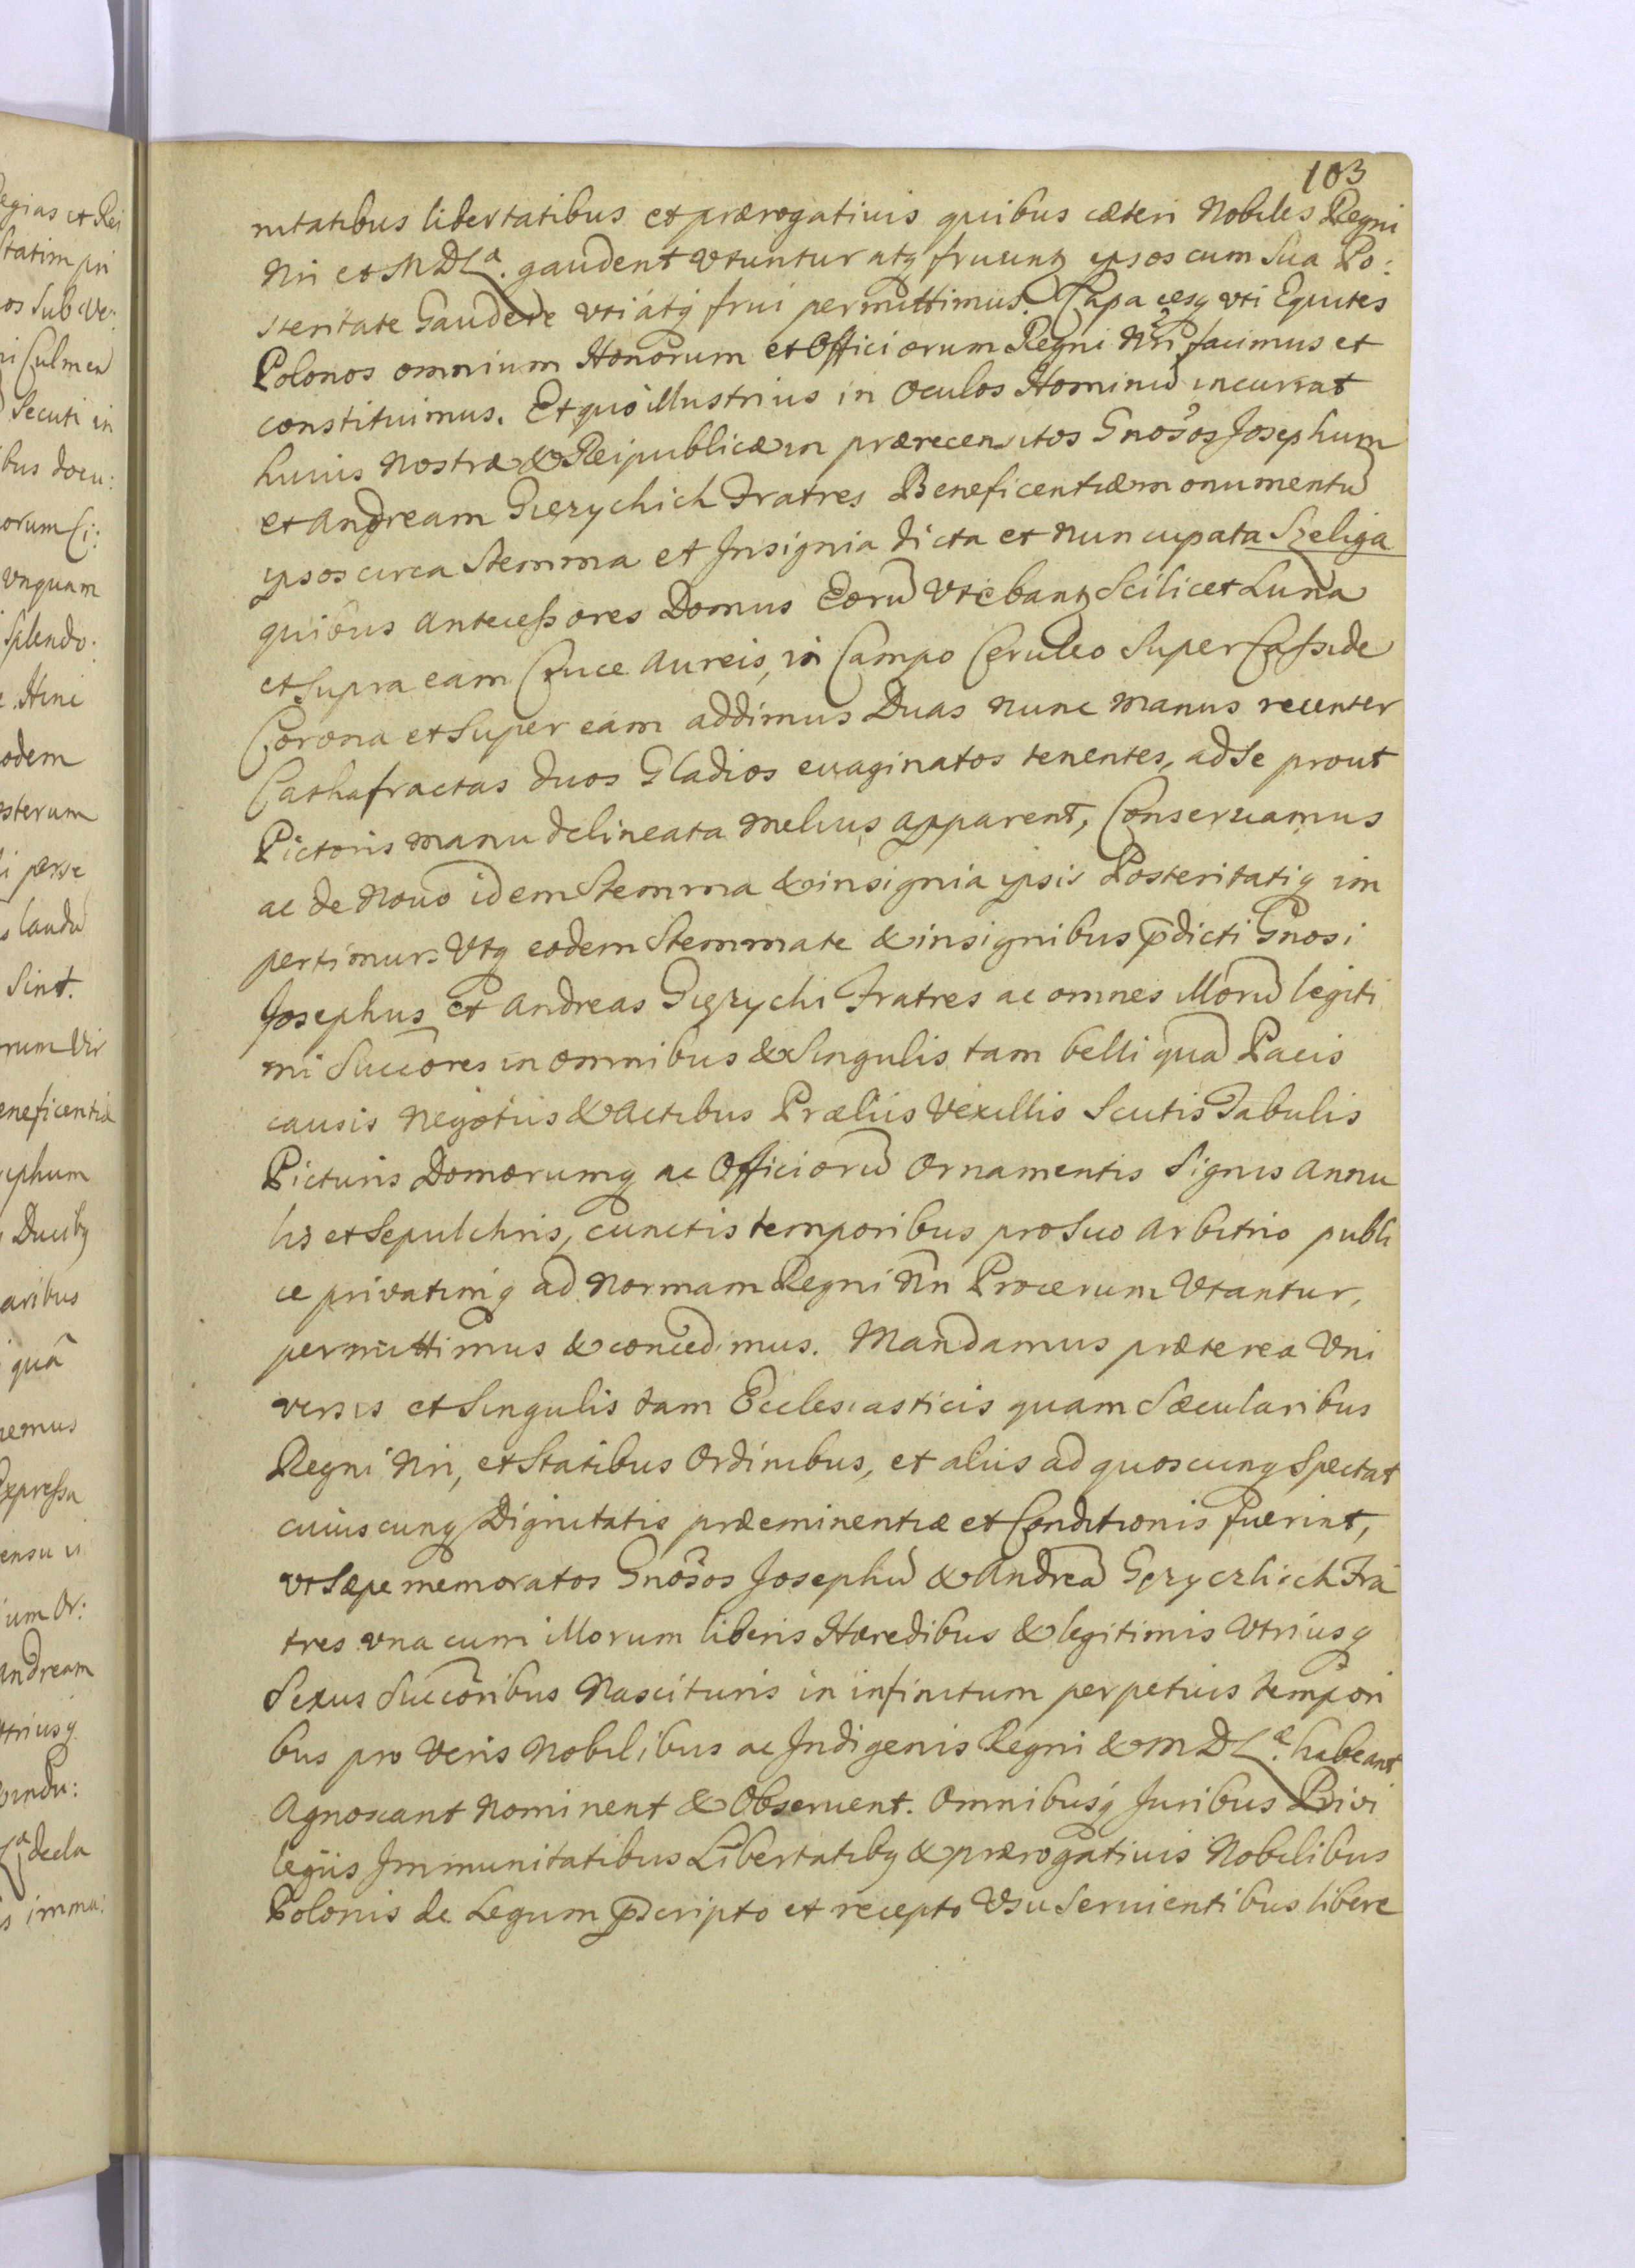 103
nitatibus libertatibus et prærogativis quibus cæteri Nobiles Regni
Nri et M D Lᵃ. gaudent Vtuntur atq fruunt ipsos cum Sua Po:
steritate Gaudere Vti atq frui permittimus. Capacesq vti Equites
Polonos omnium Honorum et Officiorum Regni Nri facimus et
constituimus. Et quo illustrius in Oculos Hominū incurrat
huius Nostræ & Reipublicæ in prærecensitos Gnosos Josephum
et Andream Gierzychich Fratres Beneficentiæ monumentū
ipsos circa Stemma et Insignia dicta et nuncupata Szeliga
quibus Antecessores Domus Eorū Vtebant Scilicet Luna
et supra eam Cruce Aureis, in Campo Ceruleo Super Casside
Corona et Super eam addimus Duas nunc manus recenter
Cathafractas duos Gladios evaginatos tenentes, ad Se prout
Pictoris manu delineata melius apparent, Conservamus
ac de Novo idem Stemma & insignia ipsis Posteritatiq im
pertimur. Vtq eodem Stemmate & insignibus p̄dicti Gnosi
Josephus et Andreas Gierzychi Fratres ac omnes Illorū legiti
mi Succōres in omnibus & Singulis tam belli quā Pacis
causis Negotiis & Actibus Præliis Vexillis Scutis Tabulis
Picturis Domorumq ac Officiorū Ornamentis Signis Annu
lis et Sepulchris, cunctis temporibus pro Suo Arbitrio publi
ce privatimq ad Normam Regni Nri Procerum Vtantur,
permittimus & concedimus. Mandamus præterea Uni
versis et Singulis tam Ecclesiasticis quam Sæcularibus
Regni Nri, et Statibus Ordinibus, et aliis ad quoscunq Spectat
cuiuscunq Dignitatis præeminentiæ et Conditionis fuerint,
vt Sæpe memoratos Gnosos Josephū & Andreā Gerzychich Fra
tres una cum Illorum liberis Hæredibus & legitimis Vtriusq
Sexus Succōribus Nascituris in infinitum perpetuis tempori
bus pro Veris Nobilibus ac Indigenis Regni & M D Lᵃ. habeant
Agnoscant Nominent & Observent. Omnibusq Juribus Privi
legiis Immunitatibus Libertatibq & prærogativis Nobilibus
Polonis de Legum p̄scripto et recepto Vsu Servientibus libere